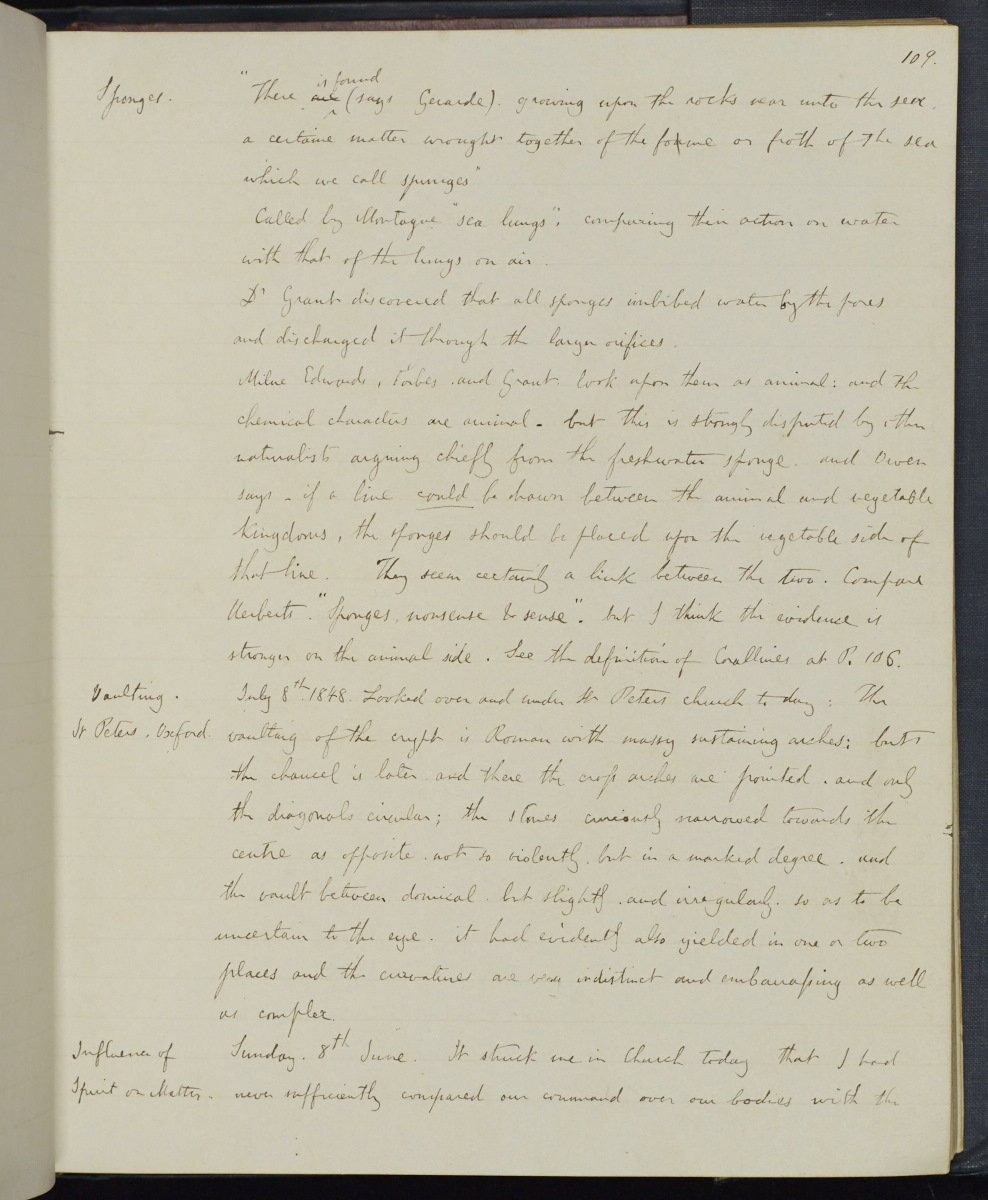 109.
Sponges.
is found
"There are (says Gerarde). growing upon the rocks near unto the sea.
a certaine matter wrought together of the fome or froth of the sea
which we call spunges"
Called by Montague "sea lungs"; comparing their action on water
with that of the lungs on air.
Dr Grant discovered that all sponges imbibed water by the pores
and discharged it through the larger orifices.
Milne Edwards, Forbes and Grant look upon them as animal: and the
chemical characters are animal - but this is strongly disputed by other
naturalists arguing chiefly from the freshwater sponge. and Owen
says - if a line could be drawn between the animal and vegetable
Kingdoms, the sponges should be placed upon the vegetable side of
that line. They seem certainly a link between the two. Compare
Herberts "Sponges, nonsense & sense". but I think the evidence is
stronger on the animal side. See the definition of Corallines at P. 106.
Vaulting.
St Peters, Oxford.
July 8th 1848. Looked over and under St Peters church to day: The
vaulting of the crypt is Roman with massy sustaining arches; but
the chancel is later and there the cross arches are pointed. and only
the diagonals circular; the stones curiously narrowed towards the
centre as opposite. not so violently. but in a marked degree. and
the vault between domical. but slightly. and irregularly. so as to be
uncertain to the eye. it had evidently also yielded in one or two
places and the curvatures are indistinct and embarrassing as well
as complex.
Influence of
Spirit on Matter.
Sunday. 8th June. It struck me in Church today that I had
never sufficiently compared our command over our bodies with the